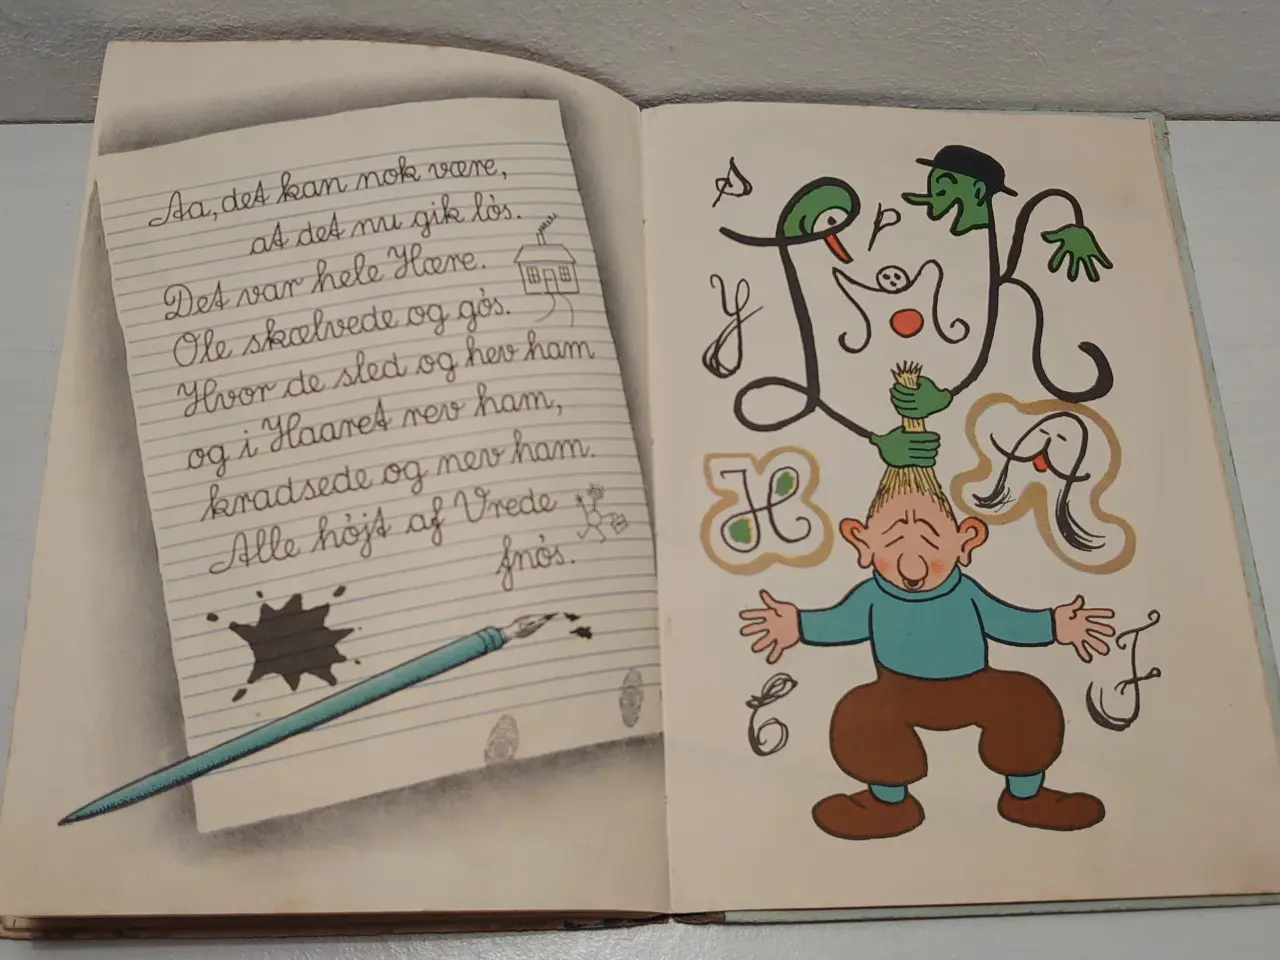 Aa, det kan nok være,
at det nu gik løs.
Det var hele Hære.
Ole skælvede og gøs.
Hvor de sled og hev ham
og i Haaret rev ham,
kradsede og nev ham.
Alle højt af Vrede
fnøs.
S
P
L
K
Y
M
H
A
E
J